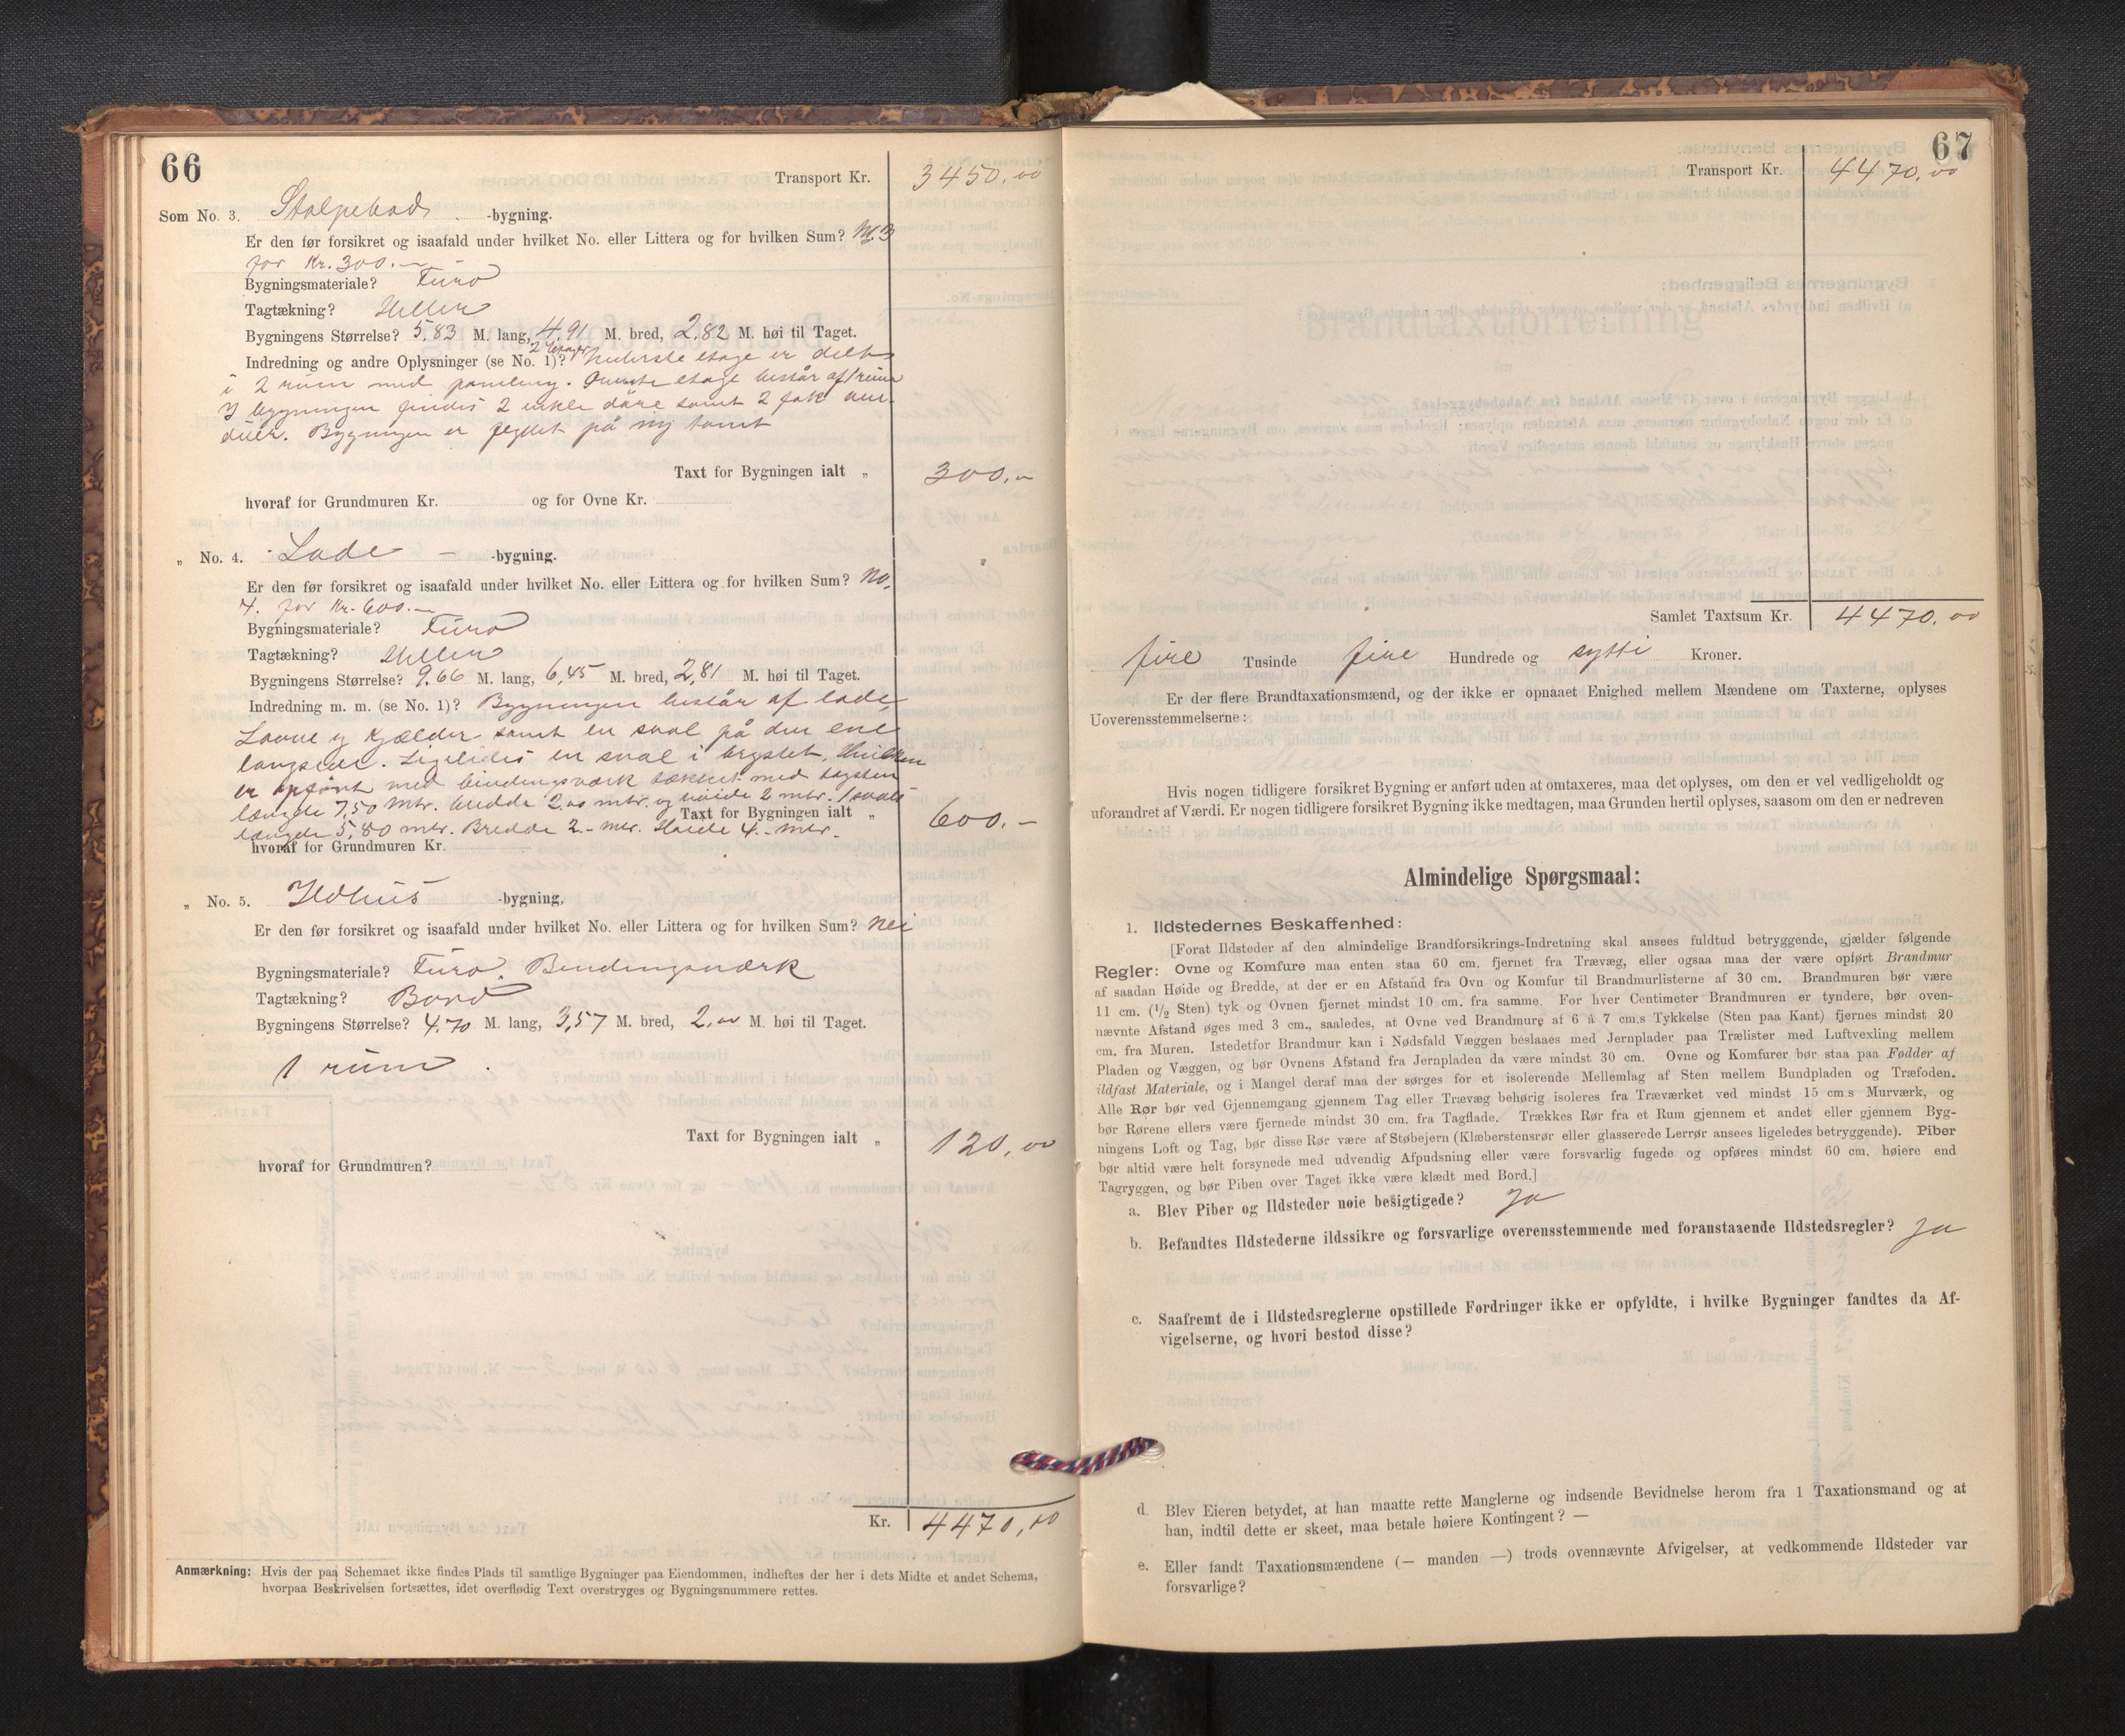 66
Transport Kr. 3450,00
Som No. 3. Stolpebod -bygning.
Er den før forsikret og isaafald under hvilket No. eller Littera og for hvilken Sum? No 3
for Kr. 300.–
Bygningsmateriale? Furu
Tagtækning? Heller
Bygningens Størrelse? 5,83 M. lang, 4,91 M. bred, 2,82 M. høi til Taget.
Indredning og andre Oplysninger (se No. 1)? 2 Etager Nederste etage er delt
i 2 rum med paneling. Øverste etage består af 1 rum
I bygningen findes 2 enkle døre samt 2 fak vin-
duer. Bygningen er flyttet på ny tomt
Taxt for Bygningen ialt „ 300.–
hvoraf for Grundmuren Kr. og for Ovne Kr.
„ No. 4. Lade – -bygning. „
Er den før forsikret og isaafald under hvilket No. eller Littera og for hvilken Sum? No.
4. for Kr. 600.–
Bygningsmateriale? Furu
Tagtækning? Heller
Bygningens Størrelse? 9.66 M. lang, 6,45 M. bred, 2,81 M. høi til Taget.
Indredning m. m. (se No. 1)? Bygningen består af lade,
Laave og Kjælder samt en sval på den ene
langside. Ligeledes en sval i brystet, Hvilken
er opført med bindingsværk tækket med tagsten
længde 7,50 Mtr. bredde 2,00 mtr. og høide 2 mtr. 1 svals
Taxt for Bygningen ialt „ 600.–
længde 5,80 mtr. Bredde 2.– mtr. Høide 4.– mtr.
hvoraf for Grundmuren Kr.
„ No. 5. Ildhus -bygning,
Er den før forsikret og isaafald under hvilket No. eller Littera og for hvilken Sum? Nei
Bygningsmateriale? Furu. Bindingsværk
Tagtækning? Bord
Bygningens Størrelse? 4.70 M. lang, 3,57 M. bred, 2,00 M. høi til Taget.
1 rum.
Taxt for Bygningen ialt „ 120,00
hvoraf for Grundmuren?
Kr. 4470,00
Anmærkning: Hvis der paa Schemaet ikke findes Plads til samtlige Bygninger paa Eiendommen, indheftes der her i dets Midte et andet Schema,
hvorpaa Beskrivelsen fortsættes, idet overflødig Text overstryges og Bygningsnummere rettes.
67
Transport Kr. 4470,00
Samlet Taxtsum Kr. 4470,00
fire Tusinde fire Hundrede og sytti Kroner.
Er der flere Brandtaxationsmænd, og der ikke er opnaaet Enighed mellem Mændene om Taxterne, oplyses
Uoverensstemmelserne:
Hvis nogen tidligere forsikret Bygning er anført uden at omtaxeres, maa det oplyses, om den er vel vedligeholdt og
uforandret af Værdi. Er nogen tidligere forsikret Bygning ikke medtagen, maa Grunden hertil oplyses, saasom om den er nedreven
Almindelige Spørgsmaal:
1. Ildstedernes Beskaffenhed:
[Forat Ildsteder af den almindelige Brandforsikrings-Indretning skal ansees fuldtud betryggende, gjælder følgende
Regler: Ovne og Komfure maa enten staa 60 cm. fjernet fra Trævæg, eller ogsaa maa der være opført Brandmur
af saadan Høide og Bredde, at der er en Afstand fra Ovn og Komfur til Brandmurlisterne af 30 cm. Brandmuren bør være
11 cm. (1/2 Sten) tyk og Ovnen fjernet mindst 10 cm. fra samme. For hver Centimeter Brandmuren er tyndere, bør oven-
nævnte Afstand øges med 3 cm., saaledes, at Ovne ved Brandmure af 6 à 7 cm.s Tykkelse (Sten paa Kant) fjernes mindst 20
cm. fra Muren. Istedetfor Brandmur kan i Nødsfald Væggen beslaaes med Jernplader paa Trælister med Luftvexling mellem
Pladen og Væggen, og bør Ovnens Afstand fra Jernpladen da være mindst 30 cm. Ovne og Komfurer bør staa paa Fødder af
ildfast Materiale, og i Mangel deraf maa der sørges for et isolerende Mellemlag af Sten mellem Bundpladen og Træfoden.
Alle Rør bør ved Gjennemgang gjennem Tag eller Trævæg behørig isoleres fra Træværket ved mindst 15 cm.s Murværk, og
bør Rørene ellers være fjernede mindst 30 cm. fra Tagflade. Trækkes Rør fra et Rum gjennem et andet eller gjennem Byg-
ningens Loft og Tag, bør disse Rør være af Støbejern (Klæberstensrør eller glasserede Lerrør ansees ligeledes betryggende). Piber
bør altid være helt forsynede med udvendig Afpudsning eller være forsvarlig fugede og opføres mindst 60 cm. høiere end
Tagryggen, og bør Piben over Taget ikke være klædt med Bord.]
a. Blev Piber og Ildsteder nøie besigtigede? Ja
b. Befandtes Ildstederne ildssikre og forsvarlige overensstemmende med foranstaaende Ildstedsregler? Ja
c. Saafremt de i Ildstedsreglerne opstillede Fordringer ikke er opfyldte, i hvilke Bygninger fandtes da Af-
vigelserne, og hvori bestod disse?
d. Blev Eieren betydet, at han maatte rette Manglerne og indsende Bevidnelse herom fra 1 Taxationsmand og at
han, indtil dette er skeet, maa betale høiere Kontingent? —
e. Eller fandt Taxationsmændene (— manden —) trods ovennævnte Afvigelser, at vedkommende Ildsteder var
forsvarlige?